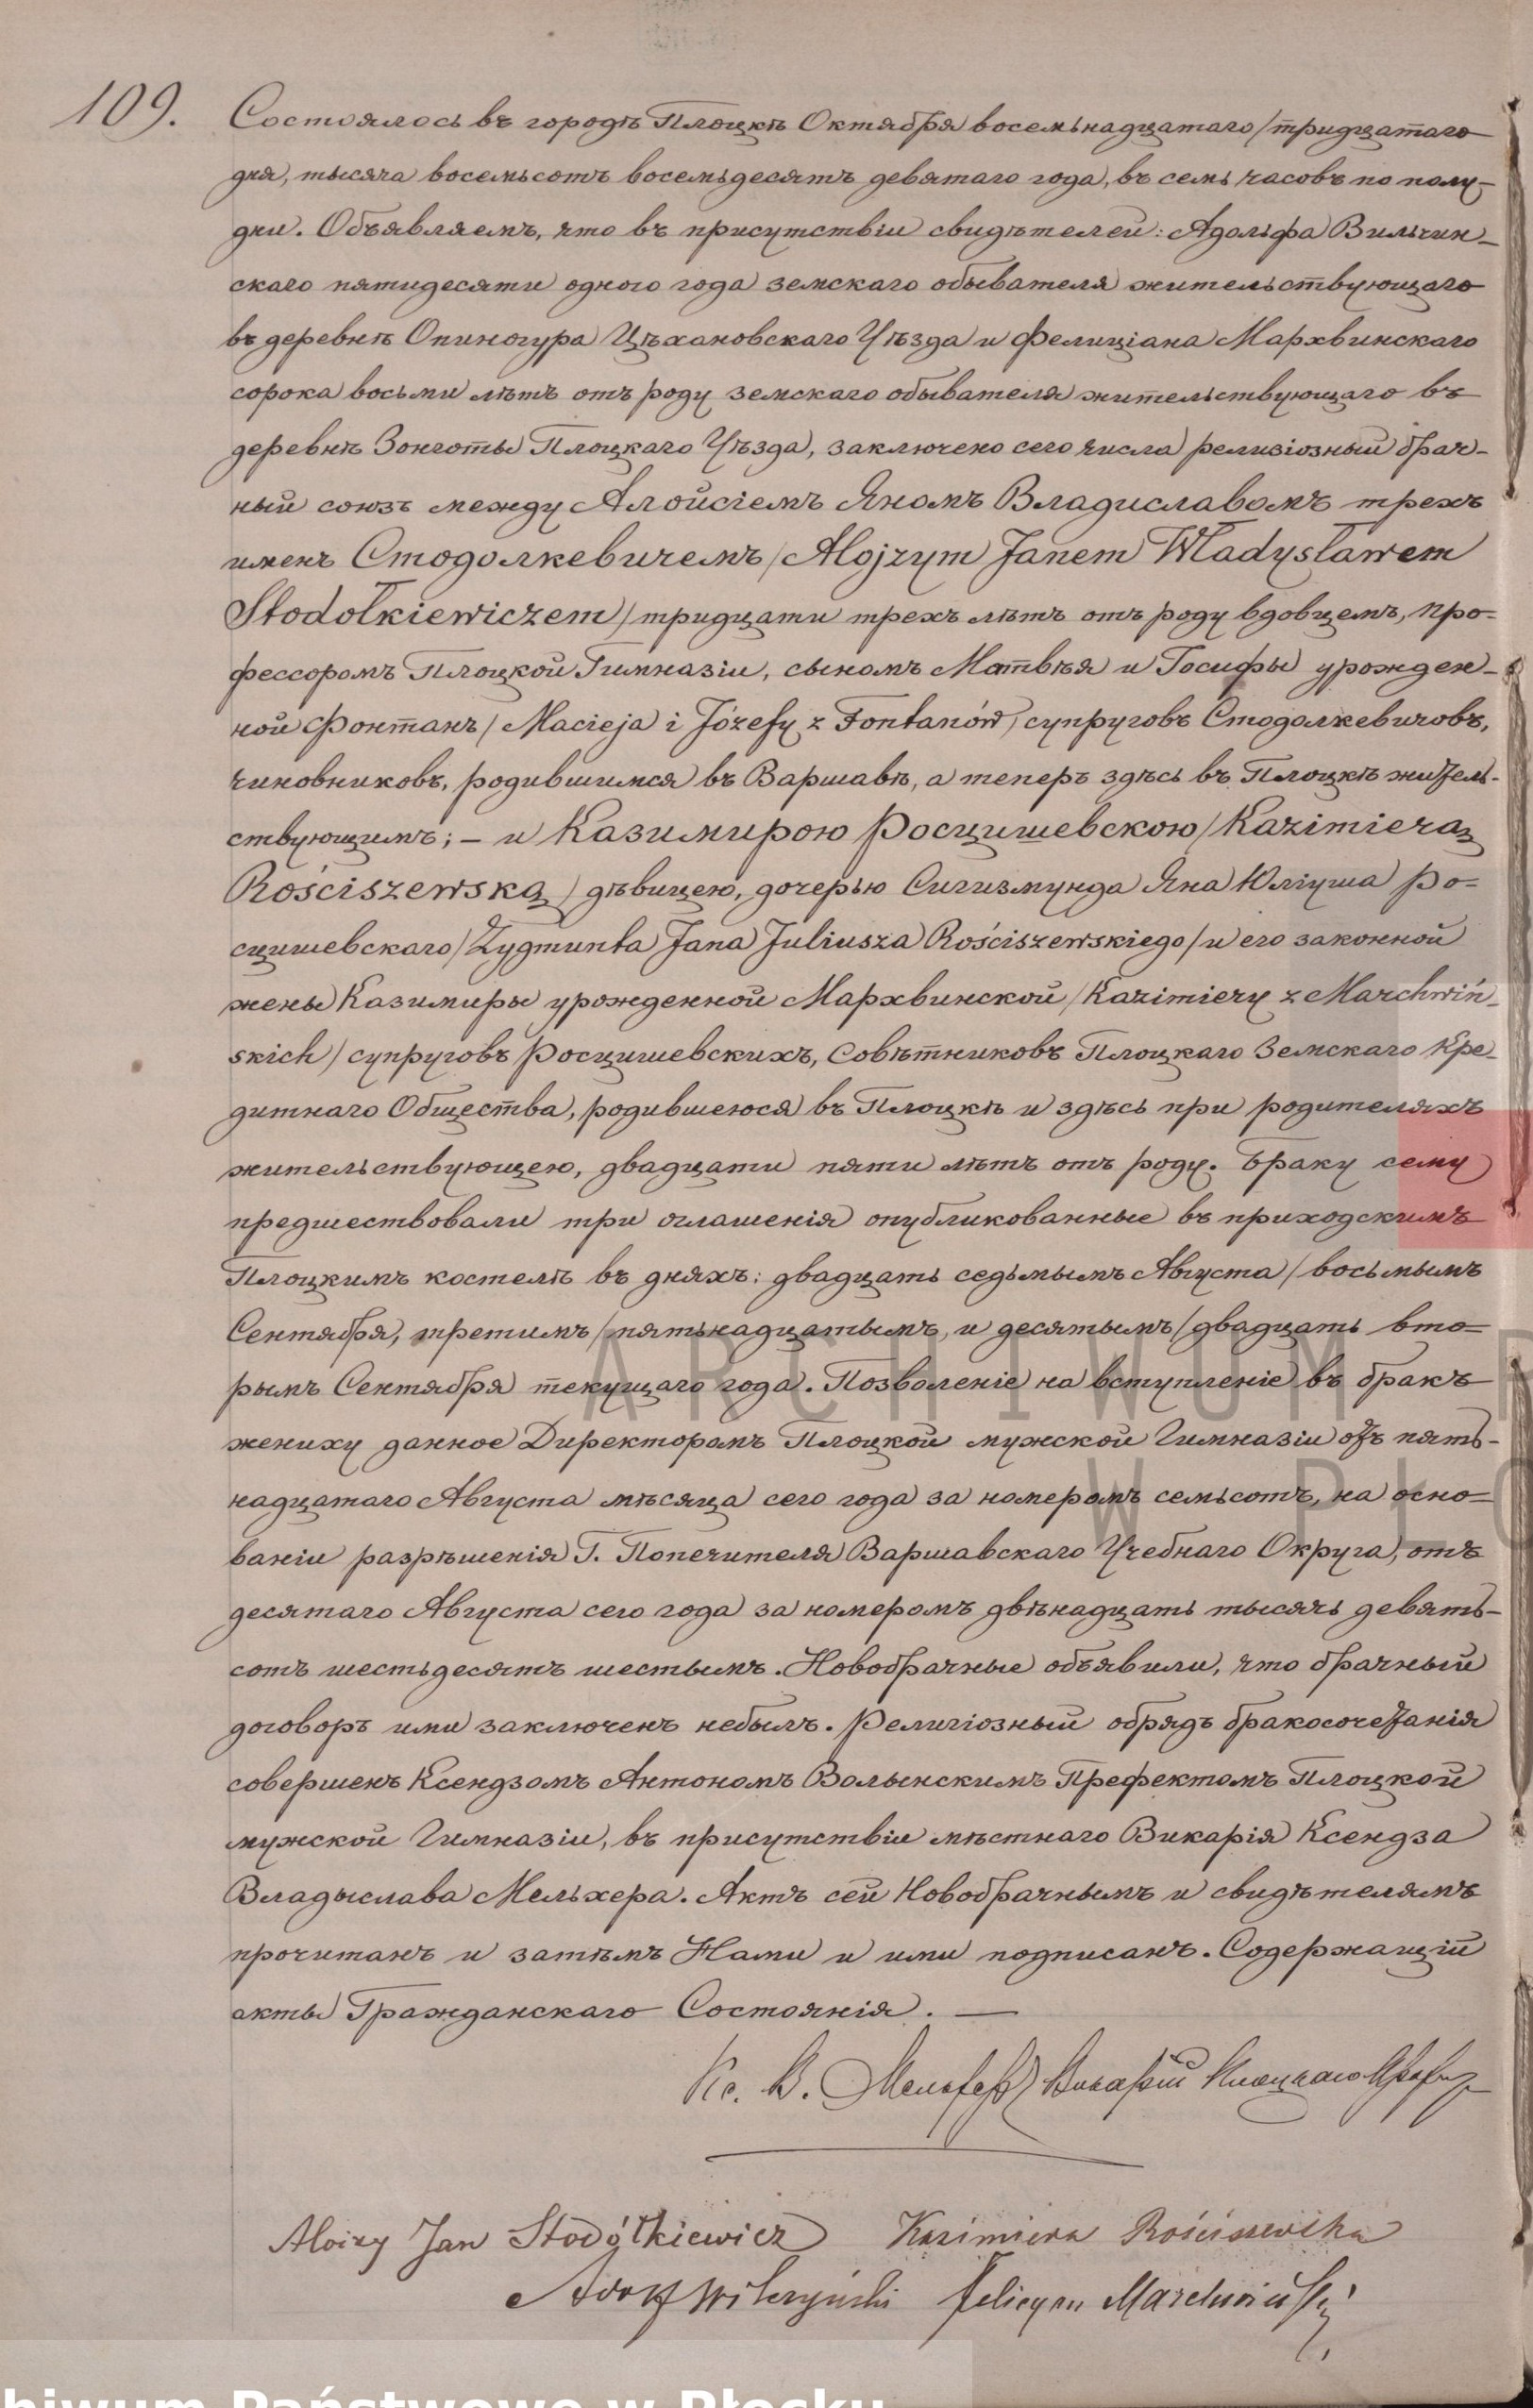 109. Состоялось въ городѣ Плоцкѣ Октября восемьнадцатаго/тридцатаго
дня, тысяча восемьсотъ восемьдесятъ девятаго года, въ семь часовъ по полу-
дни. Объявляемъ, что въ присутствіи свидѣтелей: Адольфа Вильчин-
скаго пятидесяти одного года земскаго обывателя жительствующаго
въ деревнѣ Опиногура Цѣхановскаго Уѣзда и Фелиціана Мархвинскаго
сорока восьми лѣтъ отъ роду земскаго обывателя жительствующаго въ
деревнѣ Зонготы Плоцкаго Уѣзда, заключено сего числа религіозный брач-
ный союзъ между Алойсіемъ Яномъ Владиславомъ трехъ
именъ Стодолкевичемъ /Alojzym Janem Władysławem
Stodołkiewiczem/ тридцати трехъ лѣтъ отъ роду вдовцемъ, про-
фессоромъ Плоцкой Гимназіи, сыномъ Матвѣя и Іосифы урожден-
ной Фонтанъ /Macieja i Józefy z Fontanów/ супруговъ Стодолкевичовъ,
чиновниковъ, родившимся въ Варшавѣ, а теперъ здѣсь въ Плоцкѣ житель-
ствующимъ; – и Казимирою Росцишевскою /Kazimierą
Rościszewską/ дѣвицею, дочерью Сигизмунда Яна Юліуша Ро-
сцишевскаго /Zygmunta Jana Juliusza Rościszewskiego/ и его законной
жены Казимиры урожденной Мархвинской /Kazimiery z Marchwiń-
skich/ супруговъ Росцишевскихъ, Совѣтниковъ Плоцкаго Земскаго Кре-
дитнаго Общества, родившеюся въ Плоцкѣ и здѣсь при родителяхъ
жительствующею, двадцати пяти лѣтъ отъ роду. Браку сему
предшествовали три оглашенія опубликованные въ приходскимъ
Плоцкимъ костелѣ въ дняхъ: двадцать седьмымъ Августа /восьмымъ
Сентября, третимъ /пятьнадцатымъ, и десятымъ /двадцать вто-
рымъ Сентября текущаго года. Позволеніе на вступленіе въ бракъ
жениху данное Директоромъ Плоцкой мужской Гимназіи отъ пять-
надцатаго Августа мѣсяца сего года за номеромъ семьсотъ, на осно-
ваніи разрѣшенія Г. Попечителя Варшавскаго Учебнаго Округа, отъ
десятаго Августа сего года за номеромъ двѣнадцать тысячь девять-
сотъ шестьдесятъ шестымъ. Новобрачные объявили, что брачный
договоръ ими заключенъ небылъ. Религіозный обрядъ бракосочетанія
совершенъ Ксендзомъ Антономъ Волынскимъ Префектомъ Плоцкой
мужской Гимназіи, въ присутствіи мѣстнаго Викарія Ксендза
Владыслава Мельхера. Актъ сей Новобрачнымъ и свидѣтелямъ
прочитанъ и затѣмъ Нами и ими подписанъ. Содержащій
акты Гражданскаго Состоянія. —
Кс. В. Мельхеръ Викарій Плоцкаго
Aloizy Jan Stodółkiewicz Kazimiera Rościszewska
Adolf Wilczyński Felicyan Marchwiński
ARCHIWUM P
W PŁO
hiwum Państwowe w Płocku